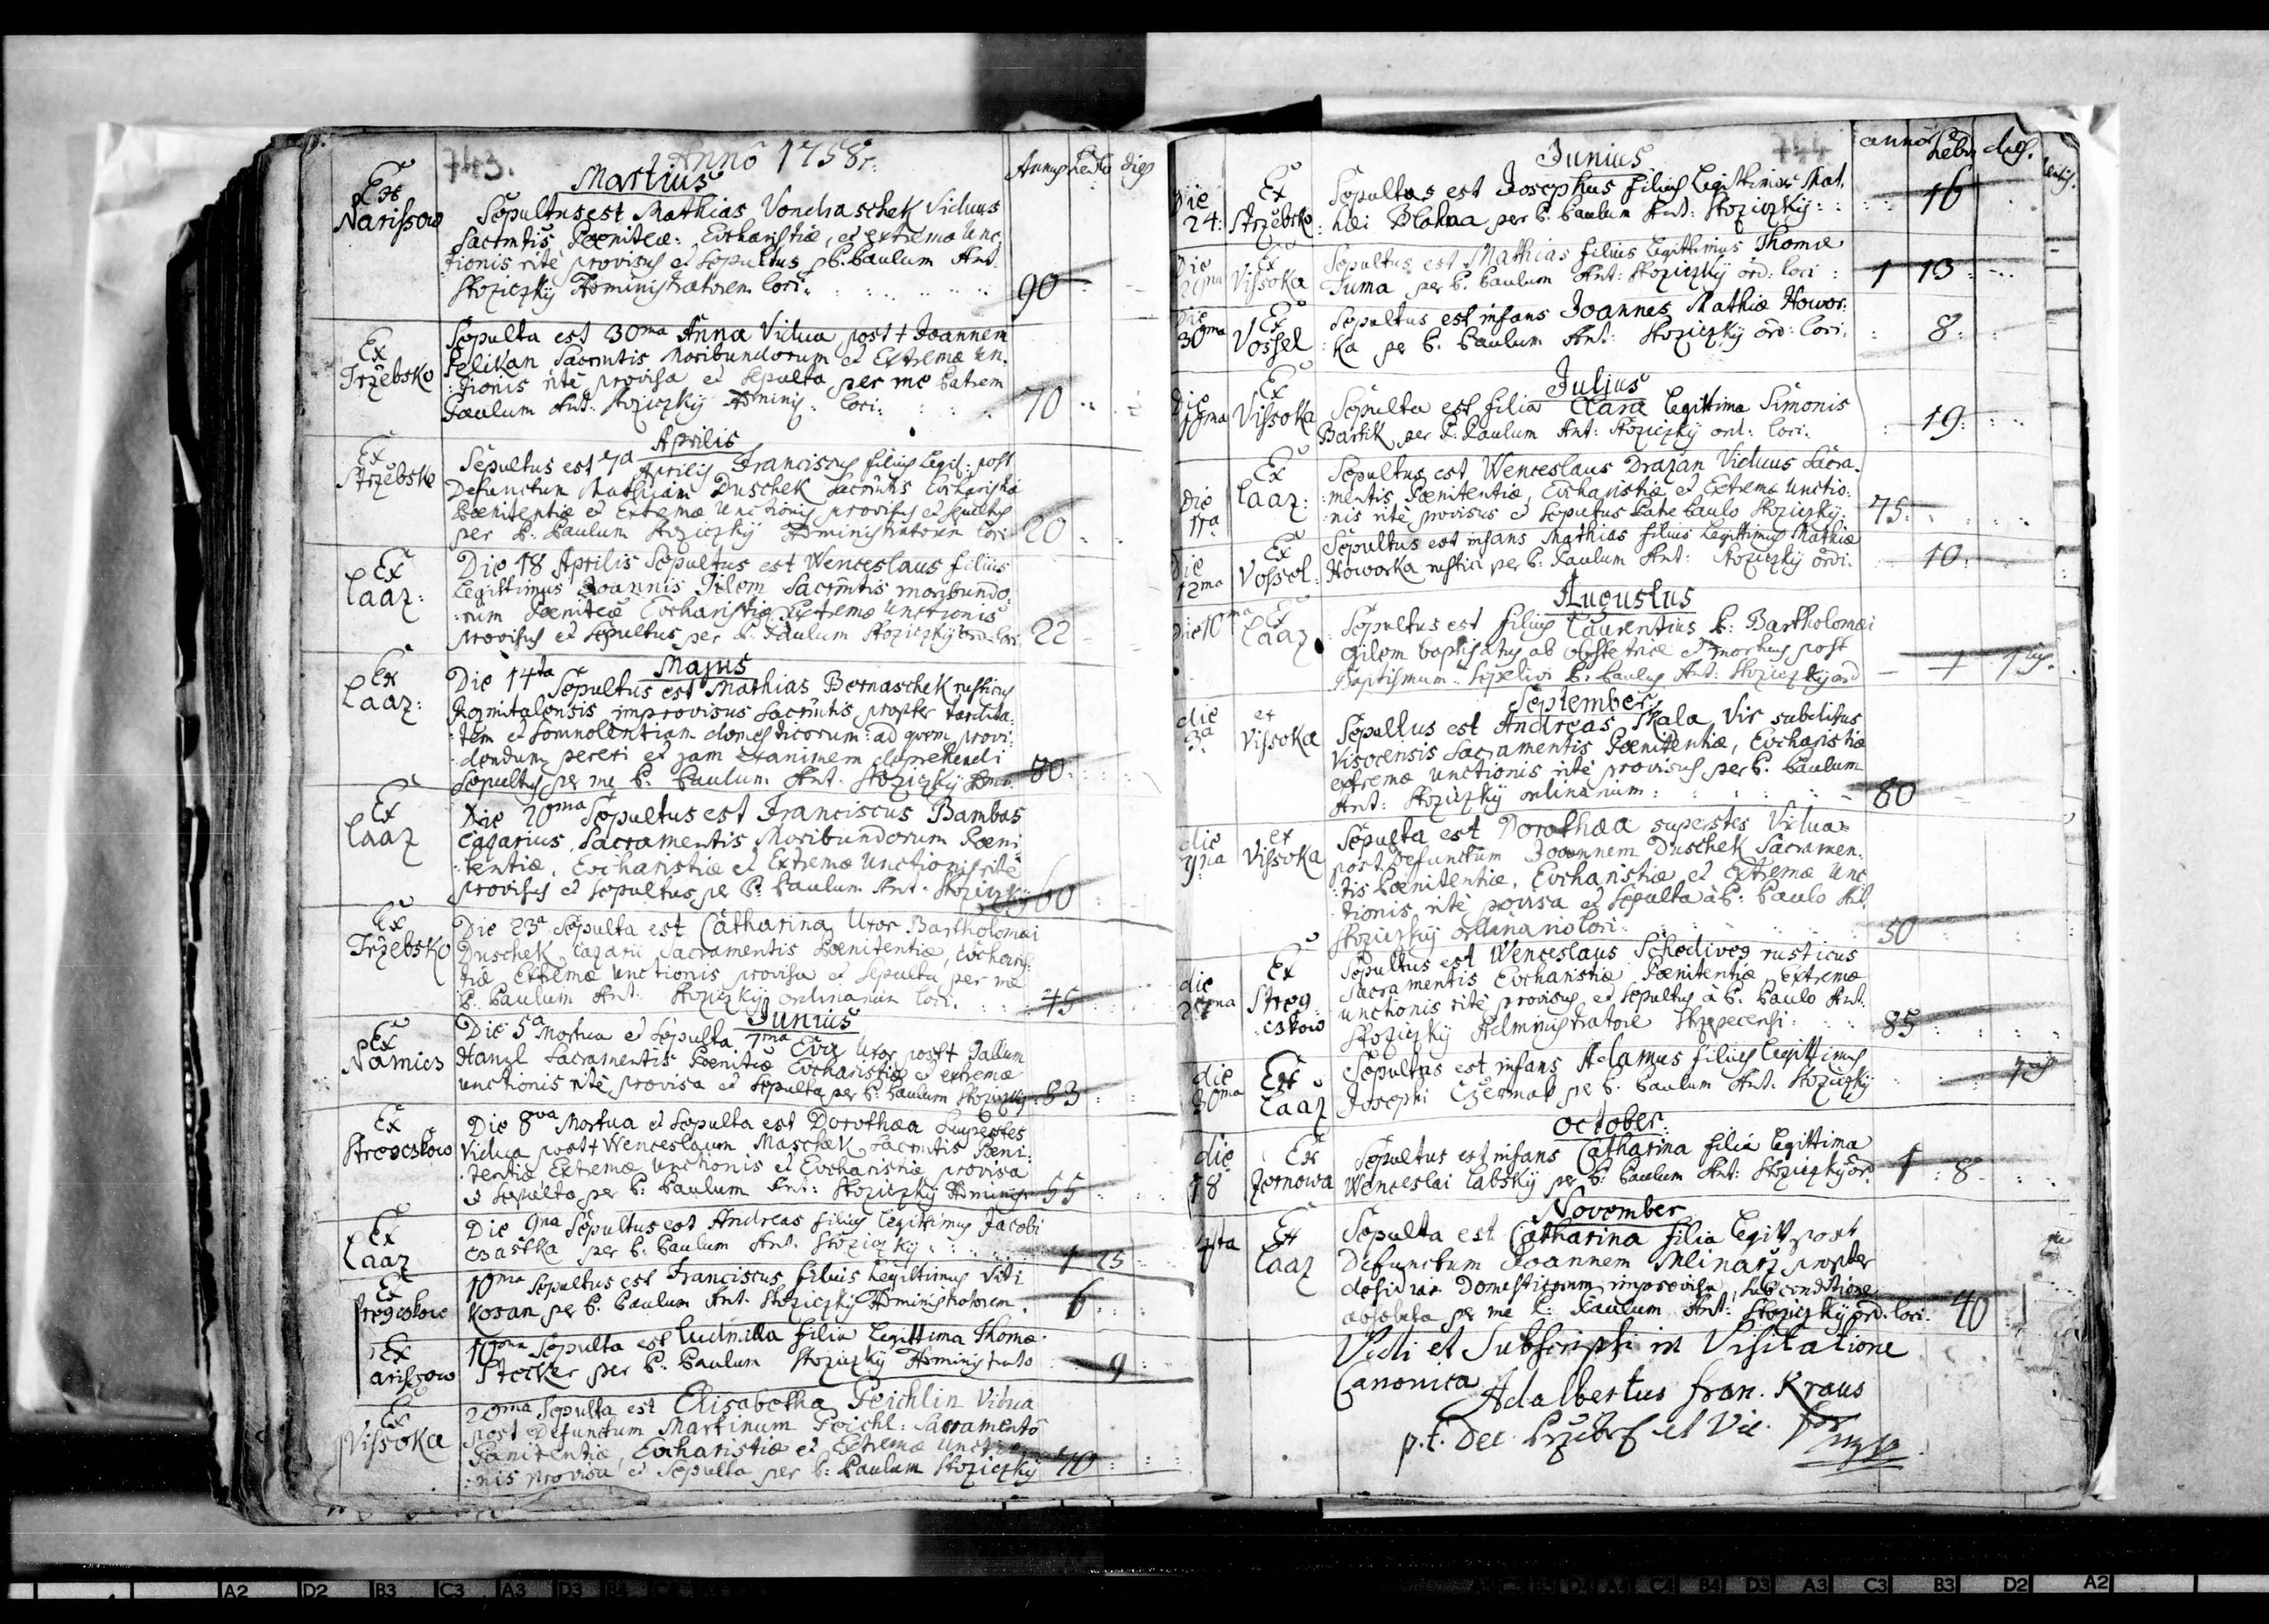 743.
Anno 1758.
Annus hebd dies
Martius
Ex
Narissow
Sepultus est Mathias Vondraschek Viduus
Sacrmtis Poeniteae: Eucharistiae, et extremae Unc
tionis rite provisus et sepultus p P. Paulum Ant:
Stoziczky Administratorem loci. 90
Ex
Trzebsko
Sepulta est 30ma Anna Vidua post + Joannem
Pelikan Sacrmtis Moribundorum et Extremae Un.
:tionis rite provisa et sepulta per me Patrem
Paulum Ant: Stoziczky Adminis: loci. 70
Aprilis
Ex
Strzebsko
Sepultus est 7a Aprilis Franciscus filius Legit: post
Defunctum Mathiam Duschek Sacrmtis Eucharistiae
Poenitentiae et Extremae Unctionis provisus et sepultus
per P: Paulum Stoziczky Administratorem loci 20
Ex
Laaz:
Die 18 Aprilis Sepultus est Wenceslaus filius
Legittimus Joannis Jilem Sacrmtis moribundo:
:rum Poeniteae Eucharistiae Extremae Unctionis
provisus et sepultus per P. Paulum Stoziczky ord: loci 22
Majus
Ex
Laaz:
Die 14ta Sepultus est Mathias Bernaschek rusticus
Rozmitalensis improvisus Sacrmtis propter tardita:
:tem et somnolentiam domesticorum: ad quem provi:
:dendum pereri et jam exanimem deprehendi
Sepultus per me P. Paulum Ant. Stoziczky Admin. 80
Ex
Laaz
Die 20ma Sepultus est Franciscus Bambas
Casarius, Sacramentis Moribundorum Poeni
:tentiae, Eucharistiae et Extremae Unctionis rite
provisus et sepultus per P: Paulum Ant. Stoziczky 60
Ex
Trzebsko
Die 23a Sepulta est Catharina Uxor Bartholomaei
Duschek Casarii Sacramentis Poenitentiae, Eucharis:
tiae Extremae Unctionis provisa et sepulta per me
P. Paulum Ant: Stoziczky ordinarium loci. 45
Junius
Ex
Namies
Die 5a Mortua et sepulta 7ma Eva Uxor post + Gallum
Hanzl Sacramentis Poenitiae Eucharistiae et extremae
unctionis rite provisa et sepulta per P: Paulum Stoziczky 83
Ex
Stroozkow
Die 8va Mortua et sepulta est Dorothaea Superstes
Vidua post + Wenceslaum Maschek Sacrmtis Poeni:
:tentiae Extremae Unctionis et Eucharistiae provisa
et sepulta per P: Paulum Ant: Stoziczky Adminis 55
Ex
Laaz
Die 9na Sepultus est Andreas filius legittimus Jacobi
Czastka per P: Paulum Ant. Stoziczky 1 25
Ex
10ma Sepultus est Franciscus filius Legittimus Viti
Kozan per P. Paulum Ant. Stoziczky Administratorem. 6
Ex
arissow
10ma Sepulta est Ludmilla filia Legittima Thomae
Stocker per P: Paulum Stoziczky Administrato 9
Ex
Vissoka
20ma Sepulta est Elisabetha Peichlin Vidua
post Defunctum Martinum Peichl: Sacramento
Poenitentiae, Eucharistiae et Extremae Unctio
:nis provisa et sepulta per P: Paulum Stoziczky 40
744
annos hebd. dies.
Junius
Die
24.
Ex
Strzebsko
Sepultus est Josephus filius Legittimus Mat.
hiae Blahna per P. Paulum Ant: Stoziczky: 16
Die
Ex
Vissoka
Sepultus est Mathias filius Legittimus Thomae
Tuma per P. Paulum Ant: Stoziczky ord: loci: 1 13
Die
30ma
Ex
Vossel
Sepultus est infans Joannes Mathiae Howor:
ka per P. Paulum Ant: Stoziczky ord: loci. 8
Julius
Die
10ma
Ex
Vissoka
Sepulta est filia Clara legittima Simonis
Bartik per P. Paulum Ant: Stoziczky ord: loci. 19
Die
11a
Ex
Laaz:
Sepultus est Wenceslaus Drazan Viduus Sacra.
:mentis Poenitentiae, Eucharistiae et Extremae Unctio:
:nis rite provisus et sepultus Patre Paulo Stoziczky: 75
Die
12ma
Ex
Vossel:
Sepultus est infans Mathias filius Legittimus Mathiae
Howorka rustici per P. Paulum Ant: Stoziczky ordi. 10
Augustus
Die 10ma
Ex
Laaz
Sepultus est filius Laurentius P: Bartholomaei
Gilem baptisatus ab obstetrice et mortuus post
Baptismum. Sepelivi P: Paulus Ant: Stoziczky ord
September
die
3a
ex
Vissoka
Sepultus est Andreas Skala, Vir subditus
Visocensis Sacramentis Poenitentiae, Eucharistiae
extremae unctionis rite provisus per P. Paulum
Ant: Stoziczky ordinarium 80
die
9na
ex
Vissoka
Sepulta est Dorothaea superstes Vidua
post Defunctum Joannem Duschek Sacramen:
:tis Poenitentiae, Eucharistiae et Extremae Unc
:tionis rite povisa et sepulta a P: Paulo Ant
Stoziczky ordinario loci: 50
die
Ex
Streg
czkow
Sepultus est Wenceslaus Schediveg rusticus
Sacramentis Eucharistiae Poenitentiae, Extremae
unctionis rite provisus et sepultus a P. Paulo Ant.
Stoziczky Administratore 85
die
30ma
Ex
Laaz
Sepultus est infans Adamus filius legittimus
Josephi Czermak per P. Paulum Ant. Stoziczky
October:
die
18
Ex
Zernowa
Sepultus est infans Catharina filia legittima
Wenceslai Labsky per P: Paulum Ant: Stoziczky ord. 1 8
November
4ta
Ex
Laaz
Sepulta est Catharina filia Legitt. post
Defunctum Joannem Mlinarz propter
desidiam Domesticorum improvisa, sub conditione
absoluta per me P: Paulum Ant: Stoziczky ord. loci. 40
Vidi et Subscripsi in Visitatione
Canonica
Adalbertus Fran. Kraus
p.t. Dec. et Vic.
A2 D2 B3 C3 A3 D3
B4 D3 A3 C3 B3 D2 A2